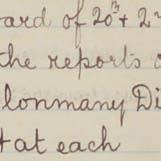 ard of 20 + 2
the reports o
lonmany Di
at each